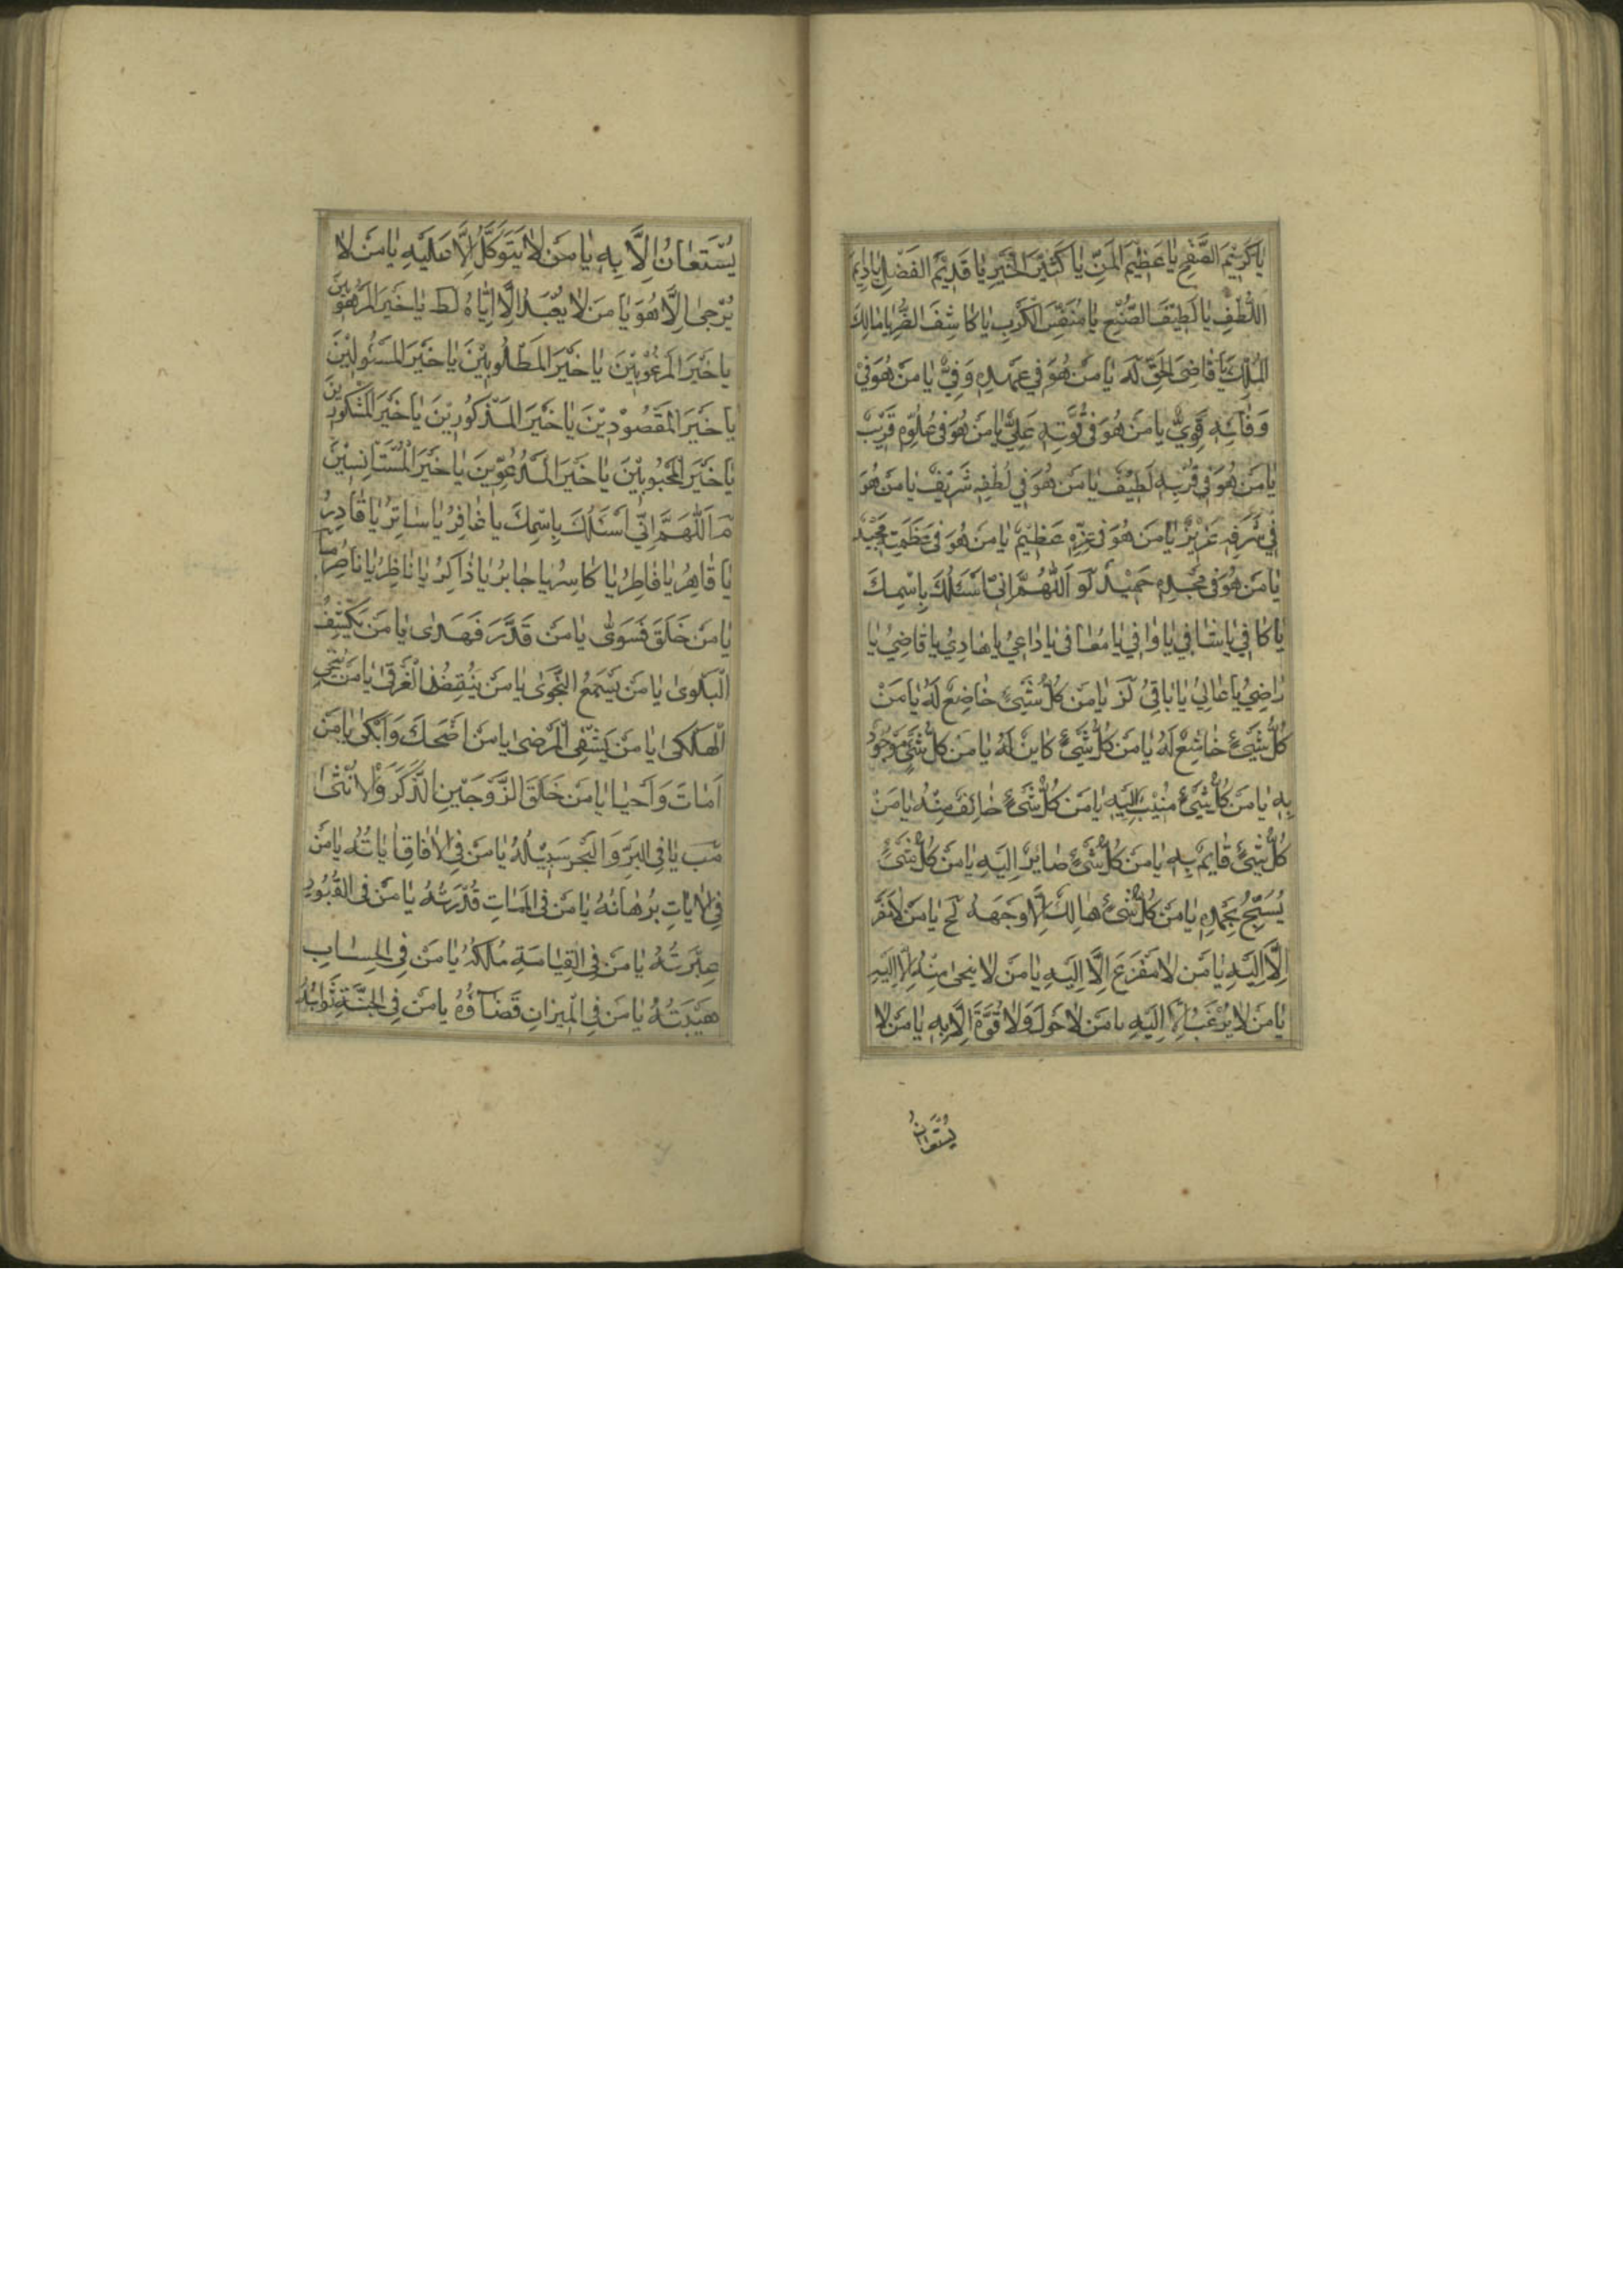 يَا كَرِيْمَ الصَّفْحِ يَا عَظِيْمَ الْمَنِّ يَا كَثِيْرَ الْخَيْرِ يَا قَدِيْمَ الْفَضْلِ يَا دَايِمَ
اللُّطْفِ يَا لَطِيْفَ الصُّنْعِ يَا مُنَفِّسَ الْكَرْبِ يَا كَاشِفَ الضُّرِّ يَا مَالِكَ
الْمُلْكِ يَا قَاضِيَ الْحَقِّ لَه يَا مَنْ هُوَ فِي عَهْدِهِ وَفِيٌّ يَا مَنْ هُوَ فِيْ
وَفَائِهِ قَوِيٌّ يَا مَنْ هُوَ فِي قُوَّتِهِ عَلِيٌّ يَا مَنْ هُوَ فِي عُلُوِّهِ قَرِيْبٌ
يَا مَنْ هُوَ فِي قُرْبِهِ لَطِيْفٌ يَا مَنْ هُوَ فِي لُطْفِهِ شَرِيْفٌ يَا مَنْ هُوَ
فِي شَرَفِهِ عَزِيْزٌ يَا مَنْ هُوَ فِي عِزِّهِ عَظِيْمٌ يَا مَنْ هُوَ فِي عَظَمَتِهِ مَجِيْدٌ
يَا مَنْ هُوَ فِي مَجْدِهِ حَمِيْدٌ لَو اَللّٰهُمَّ اِنِّي اَسْئَلُكَ بِاسْمِكَ
يَا كَافِي يَا شَافِي يَا وَافِي يَا مُعَافِي يَا دَاعِيْ يَا هَادِيْ يَا قَاضِيْ يَا
رَاضِيْ يَا عَالِيْ يَا بَاقِيْ لَز يَا مَنْ كُلُّ شَيْئٍ خَاضِعٌ لَهُ يَا مَنْ
كُلُّ شَيْئٍ خَاشِعٌ لَهُ يَا مَنْ كُلُّ شَيْئٍ كَايِنٌ لَهُ يَا مَنْ كُلُّ شَيْئٍ مَوْجُودٌ
بِهِ يَا مَنْ كُلُّ شَيْئٍ مُنِيْبٌ اِلَيْهِ يَا مَنْ كُلُّ شَيْئٍ خَائِفٌ مِنْهُ يَا مَنْ
كُلُّ شَيْئٍ قَايِمٌ بِهِ يَا مَنْ كُلُّ شَيْئٍ صَايِرٌ اِلَيْهِ يَا مَنْ كُلُّ شَيْئٍ
يُسَبِّحُ بِحَمْدِهِ يَا مَنْ كُلُّ شَيْئٍ هَالِكٌ اِلَّا وَجْهَهُ لَح يَا مَنْ لَا مَفَرَّ
اِلَّا اِلَيْهِ يَا مَنْ لَا مَفْزَعَ اِلَّا اِلَيْهِ يَا مَنْ لَا مَنْجٰى مِنْهُ اِلَّا اِلَيْهِ
يَا مَنْ لَا يُرْغَبُ اِلَّا اِلَيْهِ يَا مَنْ لَا حَوْلَ وَلَا قُوَّةَ اِلَّا بِهِ يَا مَنْ لَا
يُسْتَعَانُ اِلَّا بِهِ يَا مَنْ لَا يُتَوَكَّلُ اِلَّا عَلَيْهِ يَا مَنْ لَا
يُرْجٰى اِلَّا هُوَ يَا مَنْ لَا يُعْبَدُ اِلَّا اِيَّاهُ لَط يَا خَيْرَ الْمَرْهُوْبِيْنَ
يَا خَيْرَ الْمَرْغُوْبِيْنَ يَا خَيْرَ الْمَطْلُوْبِيْنَ يَا خَيْرَ الْمَسْئُولِيْنَ
يَا خَيْرَ الْمَقْصُوْدِيْنَ يَا خَيْرَ الْمَذْكُورِيْنَ يَا خَيْرَ الْمَشْكُورِيْنَ
يَا خَيْرَ الْمَحْبُوْبِيْنَ يَا خَيْرَ الْمَدْعُوِّيْنَ يَا خَيْرَ الْمُسْتَأْنِسِيْنَ
مَ اَللّٰهُمَّ اِنِّي اَسْئَلُكَ بِاسْمِكَ يَا غَافِرُ يَا سَاتِرُ يَا قَادِرُ
يَا قَاهِرُ يَا فَاطِرُ يَا كَاسِرُ يَا جَابِرُ يَا ذَاكِرُ يَا نَاظِرُ يَا نَاصِرُ مَا
يَا مَنْ خَلَقَ فَسَوّٰى يَا مَنْ قَدَّرَ فَهَدٰى يَا مَنْ يَكْشِفُ
الْبَلْوٰى يَا مَنْ يَسْمَعُ النَّجْوٰى يَا مَنْ يُنْقِذُ الْغَرْقٰى يَا مَنْ يُنْجِي
الْهَلْكٰى يَا مَنْ يَشْفِي الْمَرْضٰى يَا مَنْ اَضْحَكَ وَاَبْكٰى يَا مَنْ
اَمَاتَ وَاَحْيَا يَا مَنْ خَلَقَ الزَّوْجَيْنِ الذَّكَرَ وَالْاُنْثٰى
مَب يَا فِي الْبَرِّ وَالْبَحْرِ سَبِيْلُهُ يَا مَنْ فِي الْاٰفَاقِ اٰيَاتُهُ يَا مَنْ
فِي الْاٰيَاتِ بُرْهَانُهُ يَا مَنْ فِي الْمَمَاتِ قُدْرَتُهُ يَا مَنْ فِي الْقُبُورِ
عِبْرَتُهُ يَا مَنْ فِي الْقِيَامَةِ مُلْكُهُ يَا مَنْ فِي الْحِسَابِ
هَيْبَتُهُ يَا مَنْ فِي الْمِيزَانِ قَضَاؤُهُ يَا مَنْ فِي الْجَنَّةِ ثَوَابُهُ